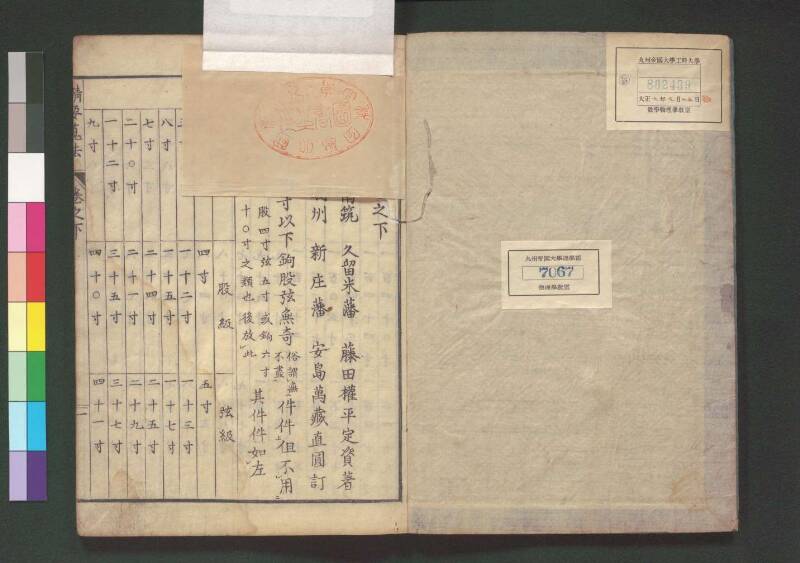 九州帝國大學工科大學
802439
數學物理學教室
九州帝國大學理學部
7067
物理學教室
之下
筑 久留米藩 藤田權平定資著
州 新庄藩 安島萬藏直圓訂
寸以下鉤股弦無奇
俗謂無
不盡
件件但不用
股四寸弦五寸或鉤六寸
十〇寸之類也後放此
其件件如左
股級
弦級
四寸
五寸
十二寸
十三寸
八寸
一十五寸
一十七寸
七寸
二十四寸
二十五寸
二十〇寸
二十一寸
二十九寸
一十二寸
三十五寸
三十七寸
九寸
四十〇寸
四十一寸
卷之下
一